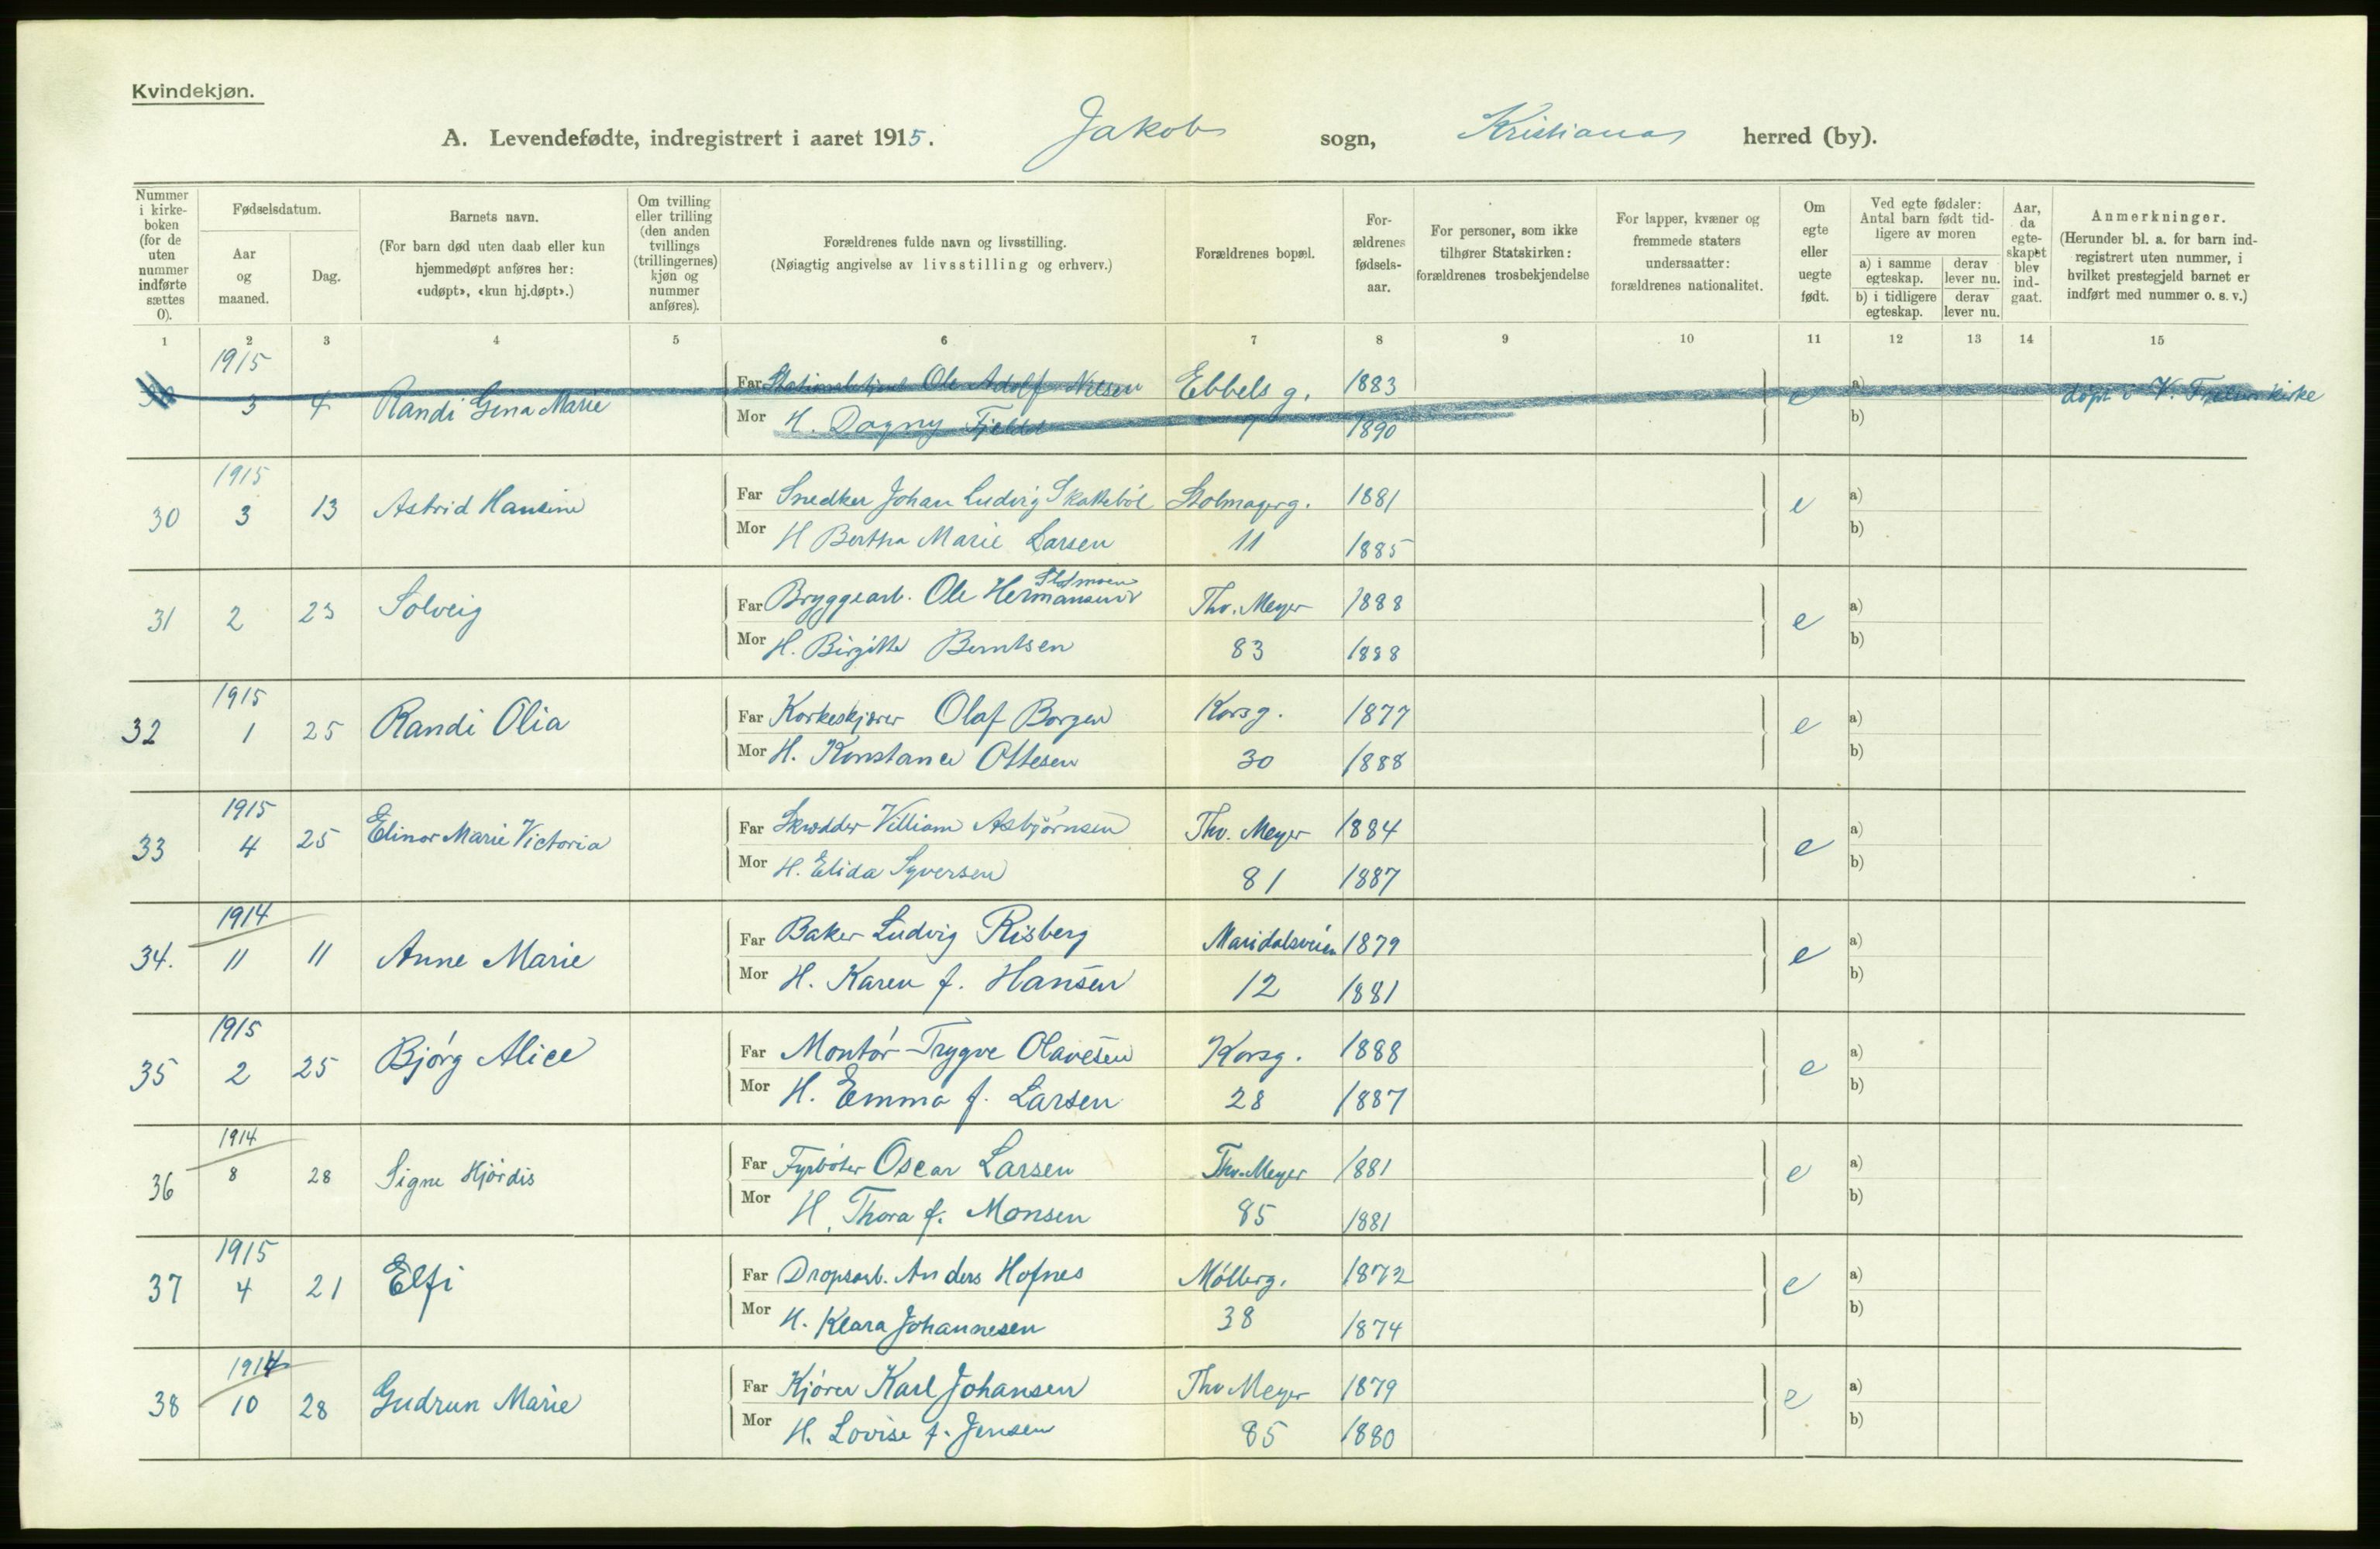 Kvindekjøn.
A. Levendefødte, indregistrert i aaret 1915. Jakob sogn, Kristiania herred (by).
Nummer i kirke-boken (for de uten nummer indførte sættes 0).
Fødselsdatum.
Aar og maaned.
Dag.
Barnets navn.
(For barn død uten daab eller kun hjemmedøpt anføres her: «udøpt», «kun hj.døpt».)
Om tvilling eller trilling (den anden tvillings (trillingernes) kjøn og nummer anføres).
Forældrenes fulde navn og livsstilling.
(Nøiagtig angivelse av livsstilling og erhverv.)
Forældrenes bopæl.
For-ældrenes fødsels-aar.
For personer, som ikke tilhører Statskirken: forældrenes trosbekjendelse
For lapper, kvæner og fremmede staters undersaatter: forældrenes nationalitet.
Om egte eller uegte født.
Ved egte fødsler: Antal barn født tid-ligere av moren
a) i samme egteskap.
derav lever nu.
b) i tidligere egteskap.
derav lever nu.
Aar, da egte-skapet blev ind-gaat.
Anmerkninger.
(Herunder bl. a. for barn ind-registrert uten nummer, i hvilket prestegjeld barnet er indført med nummer o. s. v.)
1 2 3 4 5 6 7 8 9 10 11 12 13 14 15
1915
Far Ole Adolf Nilsen Ebbels g. 1883 a)
3 4 Randi Gina Marie e døpt i V. kirke
Mor H. Dagny 7 1890 b)
1915
Far Snedker Johan Ludvig Skattebøl Stolmagerg. 1881 a)
30 3 13 Astrid Hansine e
Mor H Bertha Marie Larsen 11 1885 b)
Far Bryggearb. Ole Hermansen Thv. Meyer 1888 a)
31 2 23 Solveig e
Mor H. Birgitte Berntsen 83 1888 b)
1915
Far Korkeskjærer Olaf Borgen Korsg. 1877 a)
32 1 25 Randi Olia e
Mor H. Konstance Ottesen 30 1888 b)
1915
Far Skrædder Villiam Asbjørnsen Thv. Meyer 1884 a)
33 4 25 Elinor Marie Victoria e
Mor H. Elida Syversen 81 1887 b)
1914
Far Baker Ludvig Risberg Maridalsveien 1879 a)
34. 11 11 Anne Marie e
Mor H. Karen f. Hansen 12 1881 b)
1915
Far Montør Trygve Olavesen Korsg. 1888 a)
35 2 25 Bjørg Alice e
Mor H. Emma f. Larsen 28 1887 b)
1914
Far Fyrbøter Oscar Larsen Thv. Meyer 1881 a)
36 8 28 Signe Hjørdis e
Mor H. Thora f. Monsen 85 1881 b)
1915
Far Dropsarb. Anders Hofnes Møllerg. 1872 a)
37 4 21 Elfi e
Mor H. Klara Johannesen 38 1874 b)
1914
Far Kjører Karl Johansen Thv Meyer 1879 a)
38 10 28 Gudrun Marie e
Mor H. Lovise f. Jensen 85 1880 b)